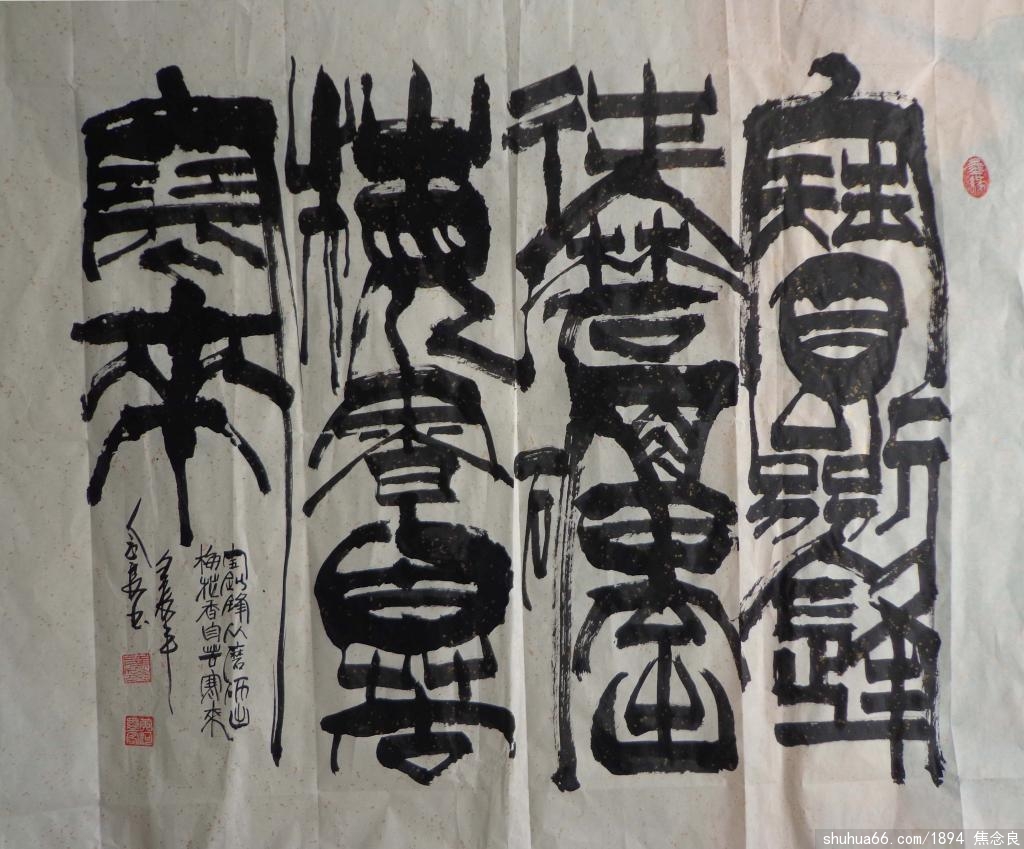 寶劍鋒
從磨礪出
梅香自苦
寒來
宝劍鋒从磨砺出
梅花香自苦寒來
念良书
shuhua66.com/1894 焦念良